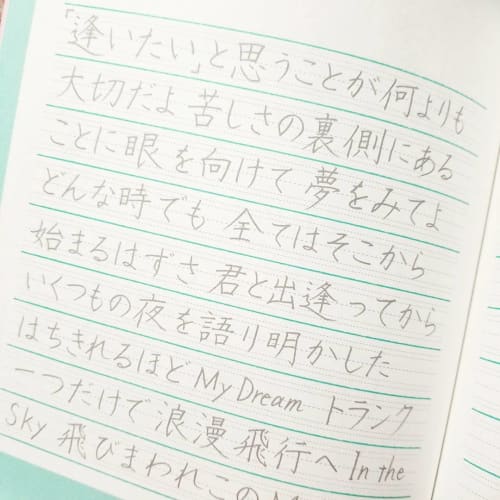 「逢いたい」と思うことが何よりも
大切だよ 苦しさの裏側にある
ことに眼を向けて 夢をみてよ
どんな時でも 全てはそこから
始まるはずさ 君と出逢ってから
いくつもの夜を語り明かした
はちきれるほど My Dream トランク
一つだけで浪漫飛行へ In the
Sky 飛びまわれこの